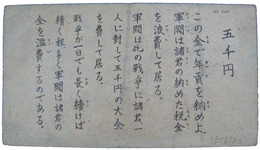 五千円
この金で年貢を納めよ
軍閥は諸君の納めた税金
を浪費して居る。
軍閥は此の戦争に諸君一
人に対して五千円の大金
を費して居る。
戦争が一日でも長く続けば
続く程多く軍閥は諸君の
金を浪費するのである。